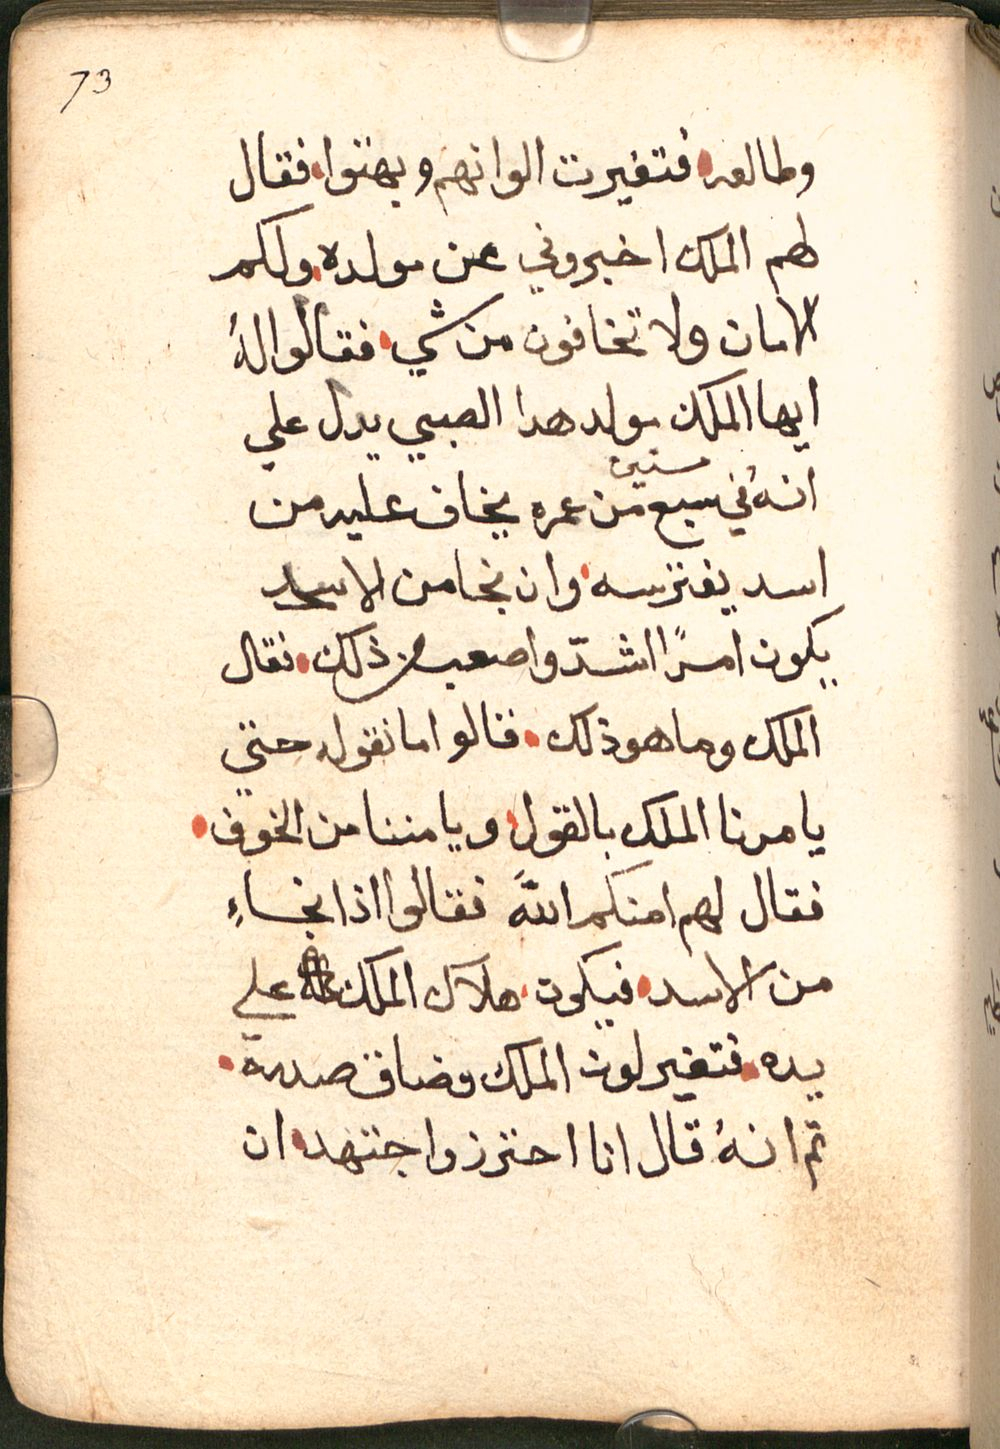 73
وطالعه فتغيرت الوانهم وبهتوا فقال
لهم الملك اخبروني عن مولده ولكم
الامان ولا تخافون من شي فقالوا لهُ
ايها الملك مولد هدا الصبي يدل علي
انهُ في سبع سنين من عمره يخاف عليه من
اسد يفترسه وان نجا من الاسد
يكون امرًا اشدّ واصعب من ذلك فقال
الملك وما هو ذلك قالوا ما نقول حتي
يامرنا الملك بالقول ويامننا من الخوف
فقال لهم امنكم اللهَّ فقالوا اذا نجاءِ
من الاسد فيكون هلاك الملك علي
يده فتغير لون الملك وضاق صدره
تم انهُ قال انا احترز واجتهد ان